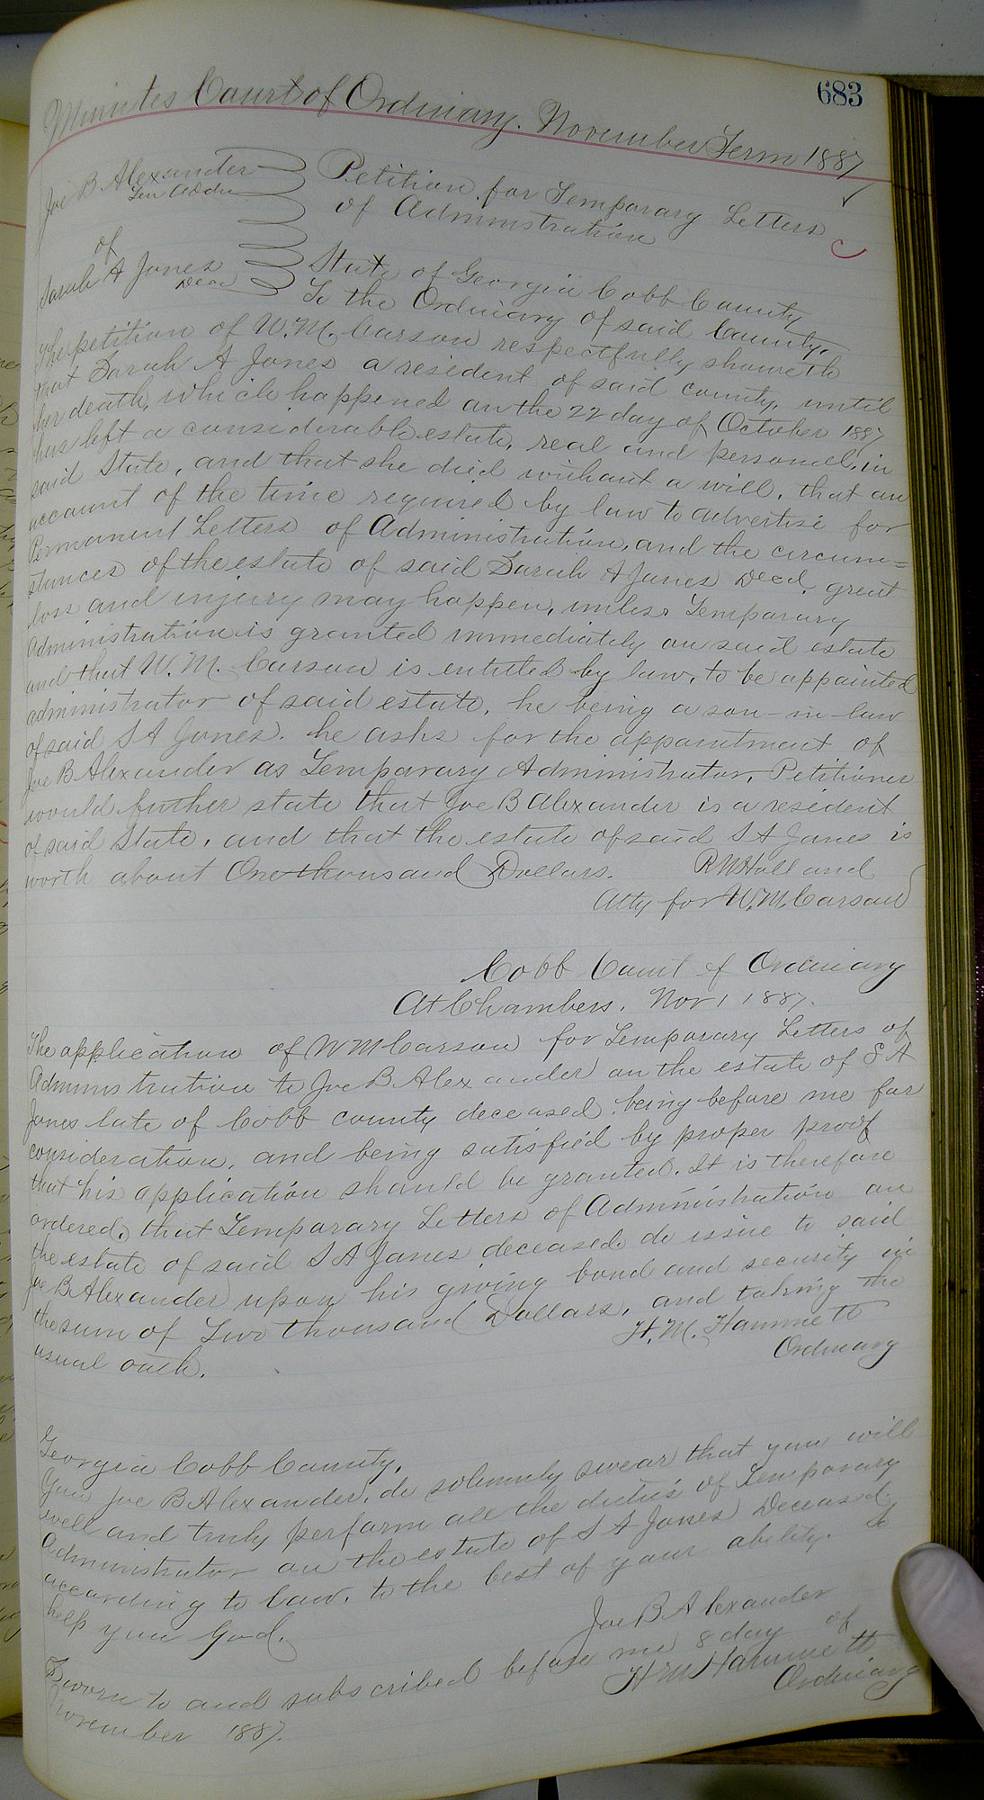 683
Minutes Court of Ordinary. November Term 1887
Joe B Alexander
Tem Addm
of
Sarah A Jones
Decd
Petition for Temporary Letters
of Administration
State of Georgia Cobb County
To the Ordinary of said County.
The petition of W. M. Carson respectfully showeth
that Sarah A Jones a resident of said county, until
her death, which happened on the 22 day of October 1887
has left a considerable estate, real and personal, in
said State, and that she died without a will, that on
account of the time required by law to advertise for
Permanent Letters of Administration, and the circum=
stances of the estate of said Sarah A Jones Decd, great
loss and injury may happen, unless Temporary
Administration is granted immediately on said estate
and that W. M. Carson is entitled by law, to be appointed
administrator of said estate, he being a son-in-law
of said S A Jones. he asks for the appointment of
Joe B Alexander as Temporary Administrator, Petitioner
would further state that Joe B Alexander is a resident
of said State, and that the estate of said S A Jones is
worth about One thousand Dollars.
R N Holland
Atty for W. M. Carson
Cobb Court of Ordinary
At Chambers, Nov 1 1887.
The application of W M Carson for Temporary Letters of
Administration to Joe B Alexander on the estate of S A
Jones late of Cobb county deceased being before me for
consideration, and being satisfied by proper proof
that his application should be granted. It is therefore
ordered, that Temporary Letters of Administration on
the estate of said S A Jones deceased do issue to said
Joe B Alexander upon his giving bond and security in
the sum of Two thousand Dollars, and taking the
usual oath.
H. M. Hammett
Ordinary
Georgia Cobb County,
You Joe B Alexander, do solemnly swear that you will
well and truly perform all the duties of Temporary
Administrator on the estate of S A Jones Deceased,
according to law, to the best of your ability. So
help you God.
Joe B Alexander
Sworn to and subscribed before me 8 day of
November 1887.
H M Hammett
Ordinary